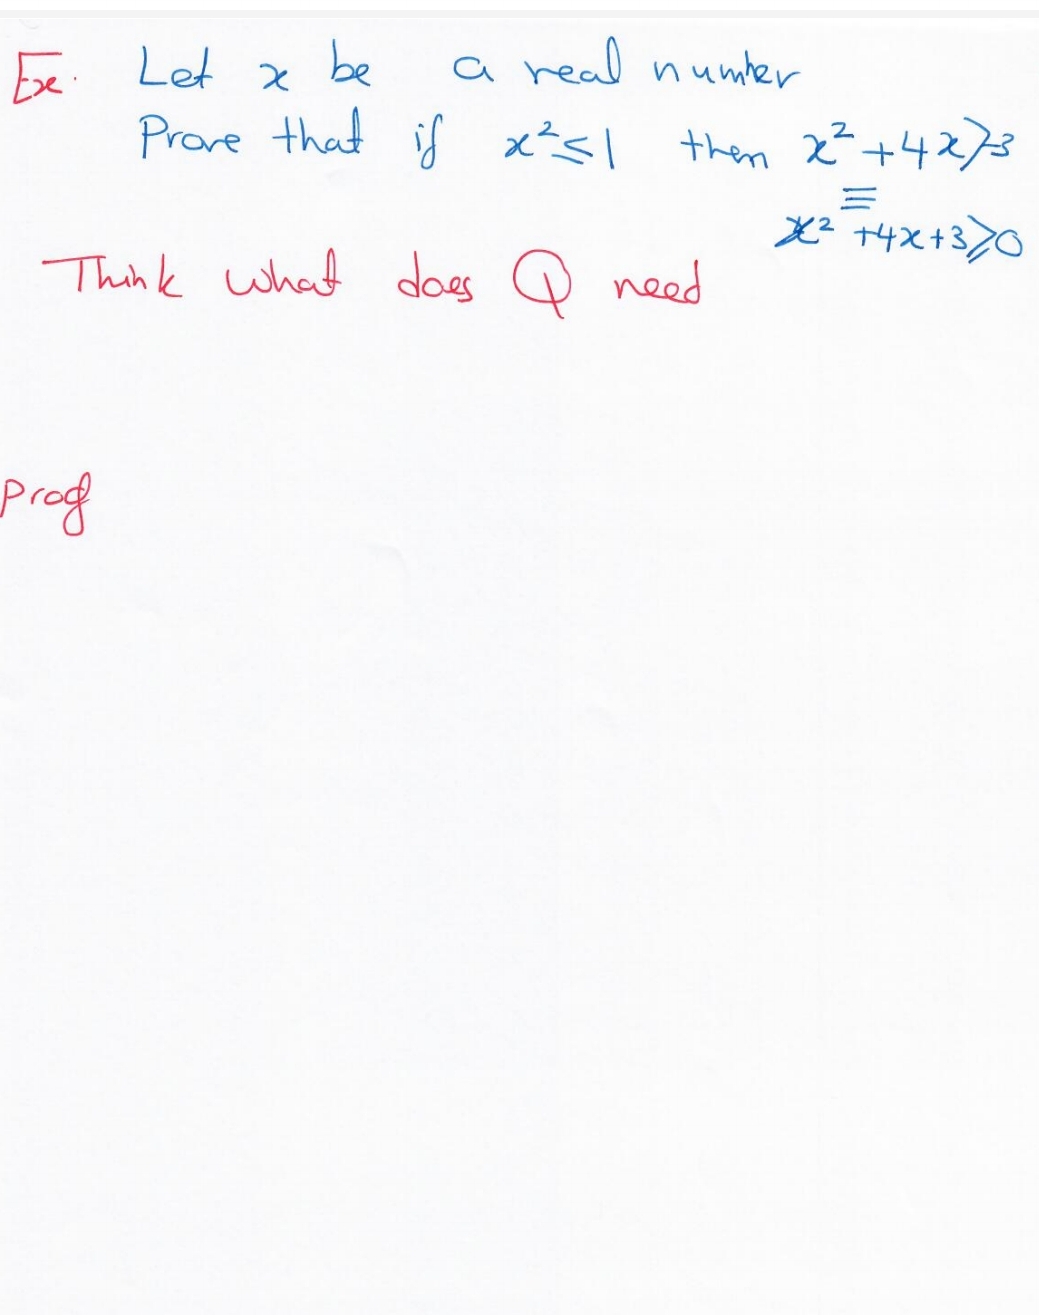 Ex. Let x be a real number
Prove that if x² ≤ 1 then x² + 4x ≥ -3
≡
x² + 4x + 3 ≥ 0
Think what does Q need
Proof